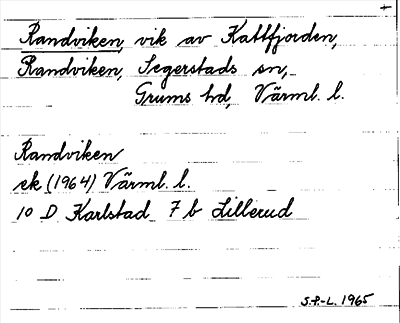 +
Randviken, vik av Kattfjorden,
Randviken, Segerstads sn,
Grums hd, Värml. l.
Randviken
ek (1964) Värml. l.
10 D Karlstad 7 b Lillerud
S.P.-L. 1965